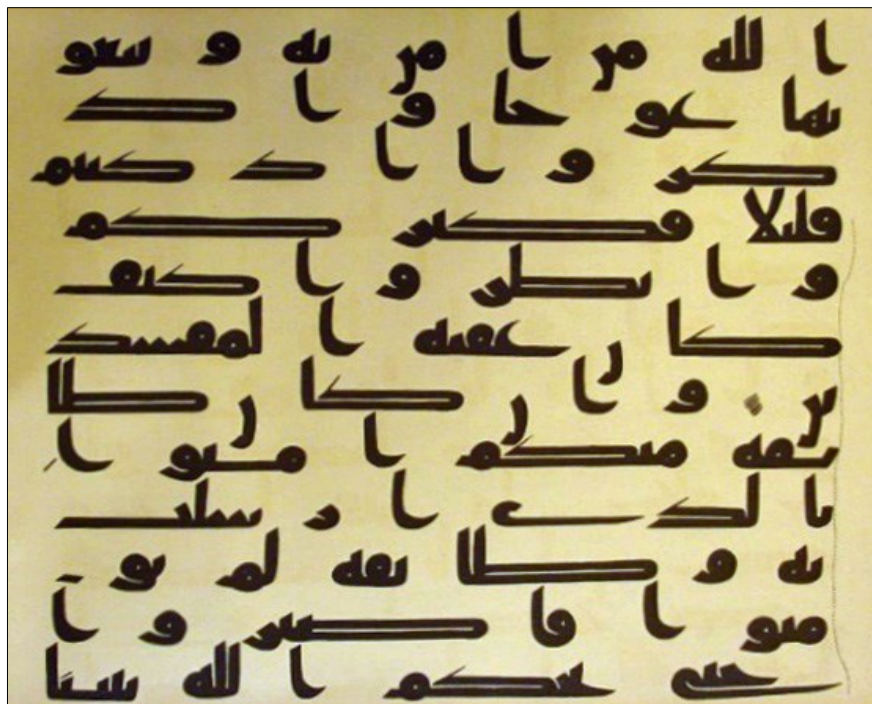 الله من امن به وتبغو
نها عوجا واذ
كروا اذ كنتم
قليلا فكثركم
وانظروا كيف
كان عقبه المفسد
ين وان كان طا
ئفه منكم امنوا
بالذي ارسلت
به وطائفه لم يؤ
منوا فاصبروا
حتى يحكم الله بيننا